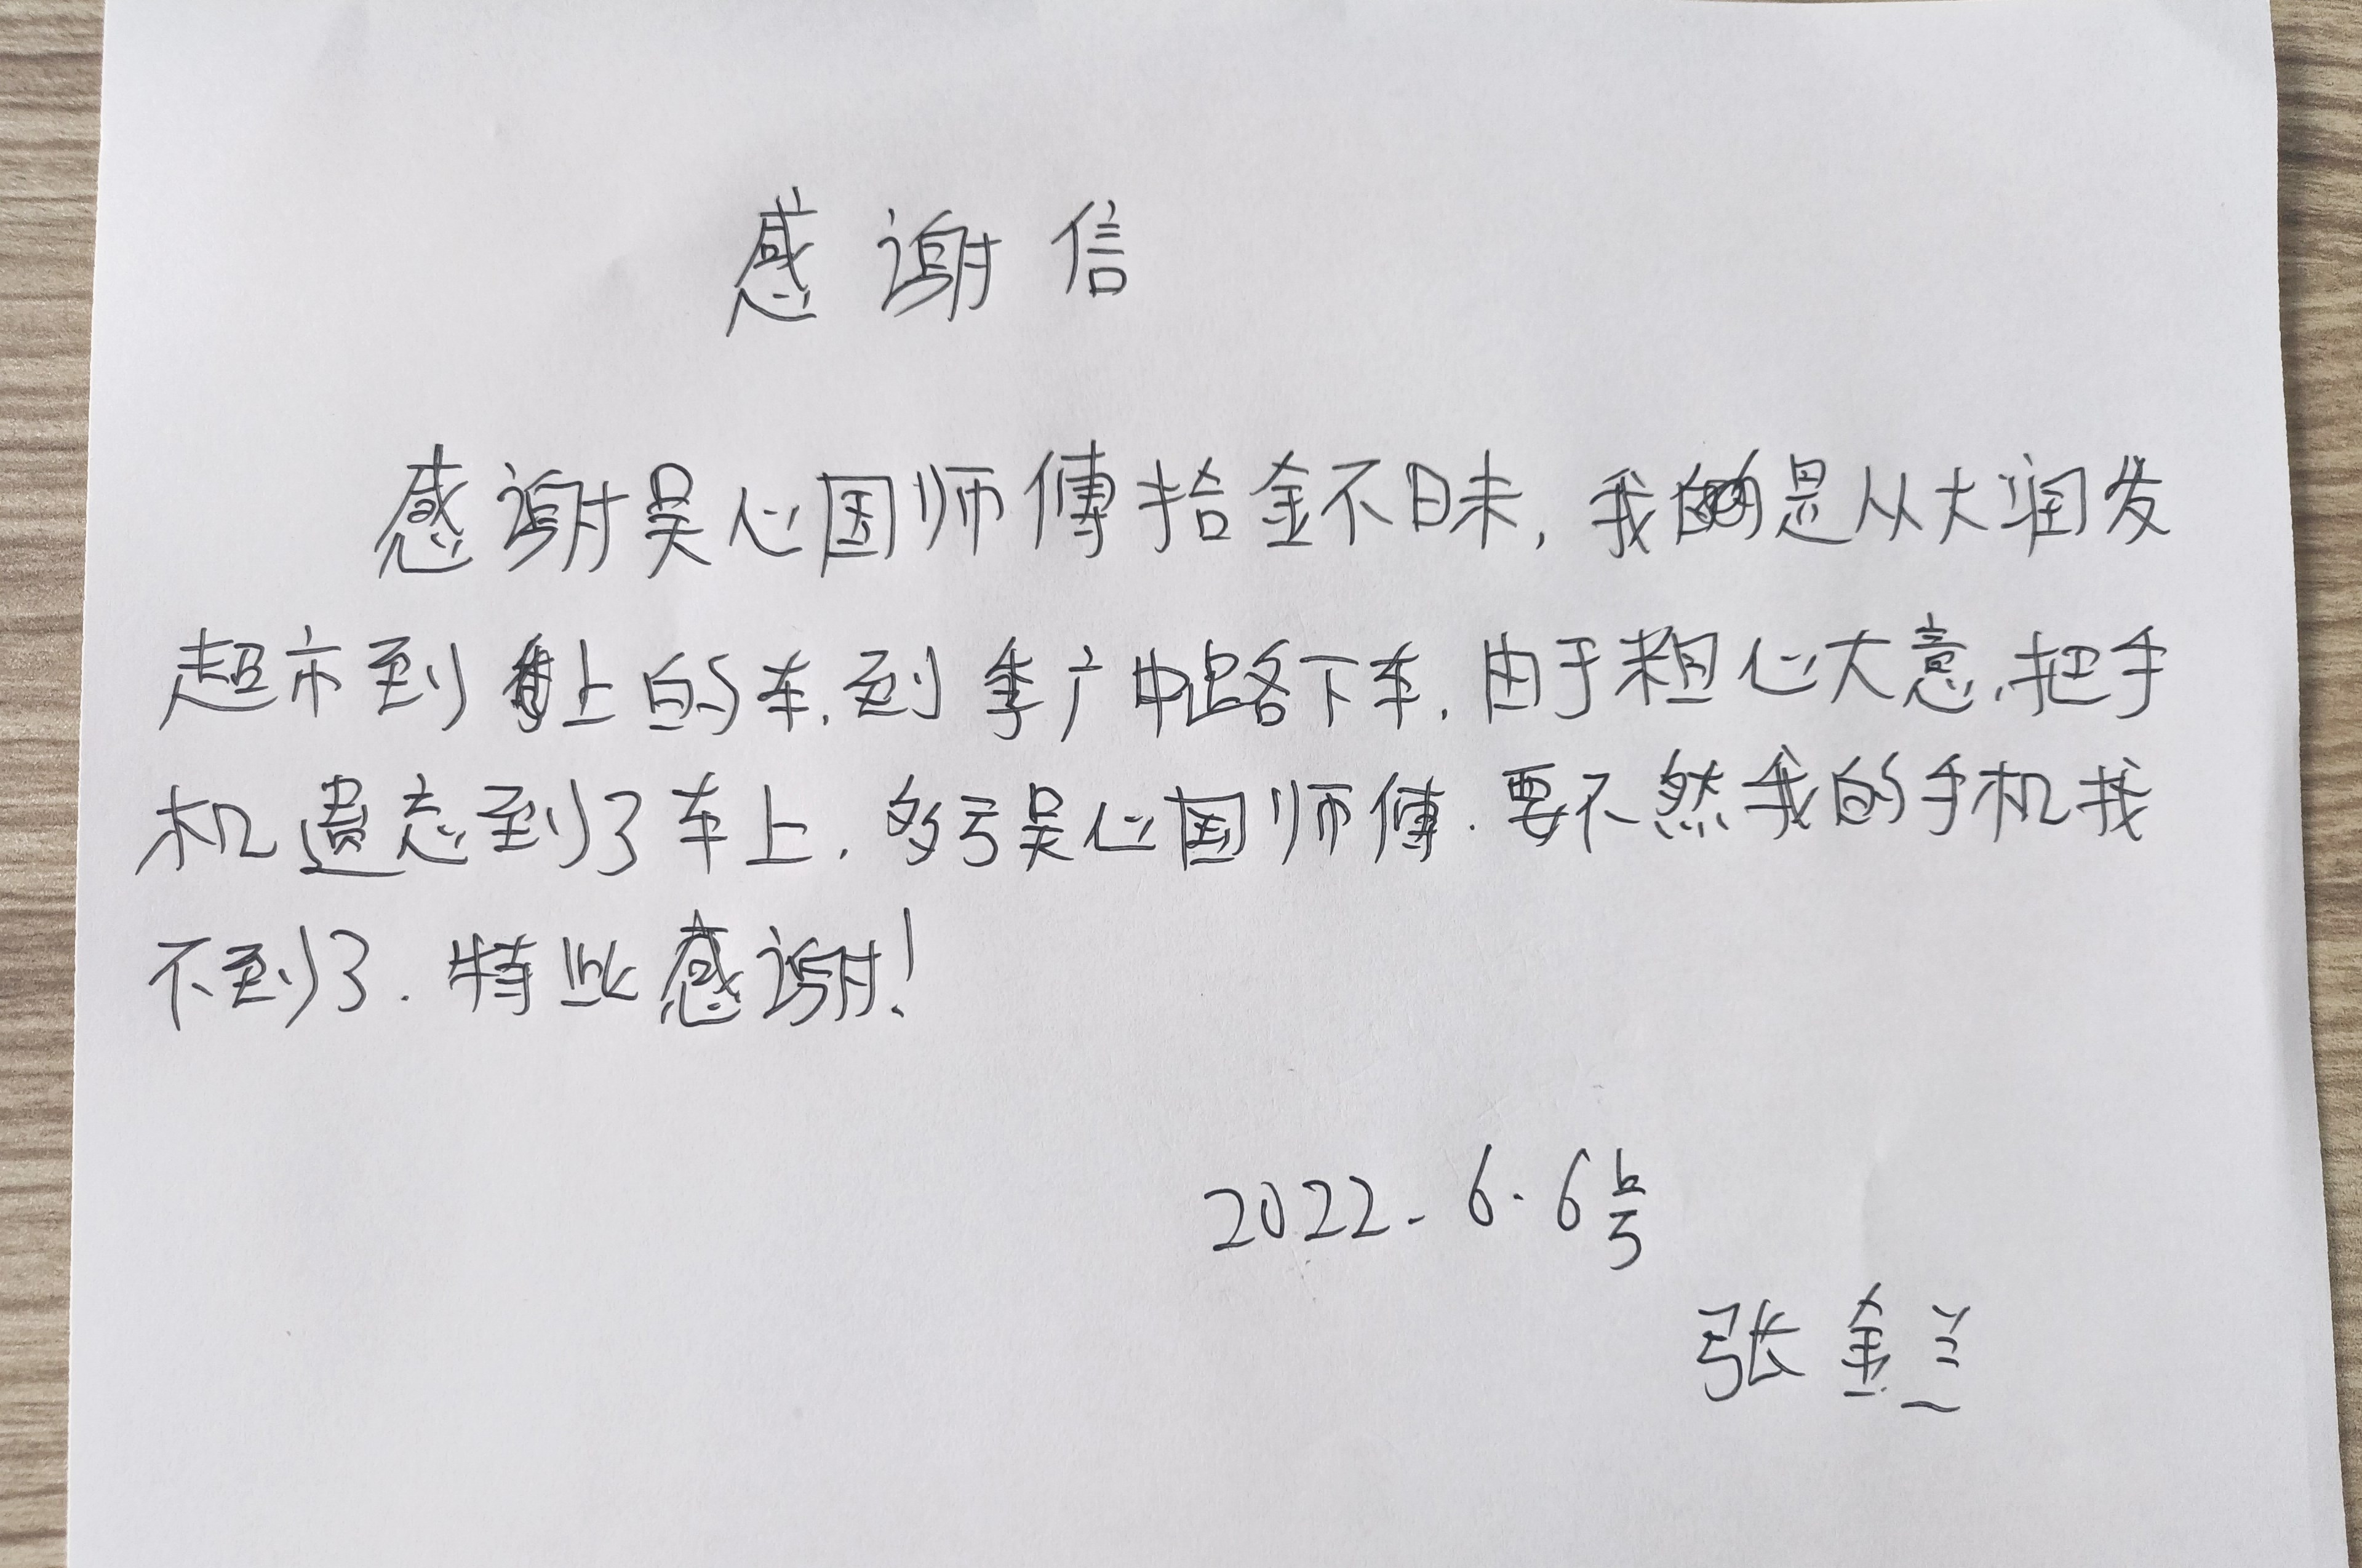 感谢信
感谢吴心国师傅拾金不昧,我是从大润发
超市到上的车.到季广中路下车.由于粗心大意,把手
机遗忘到了车上.多亏吴心国师傅.要不然我的手机找
不到了.特此感谢!
2022.6.6号
张金兰